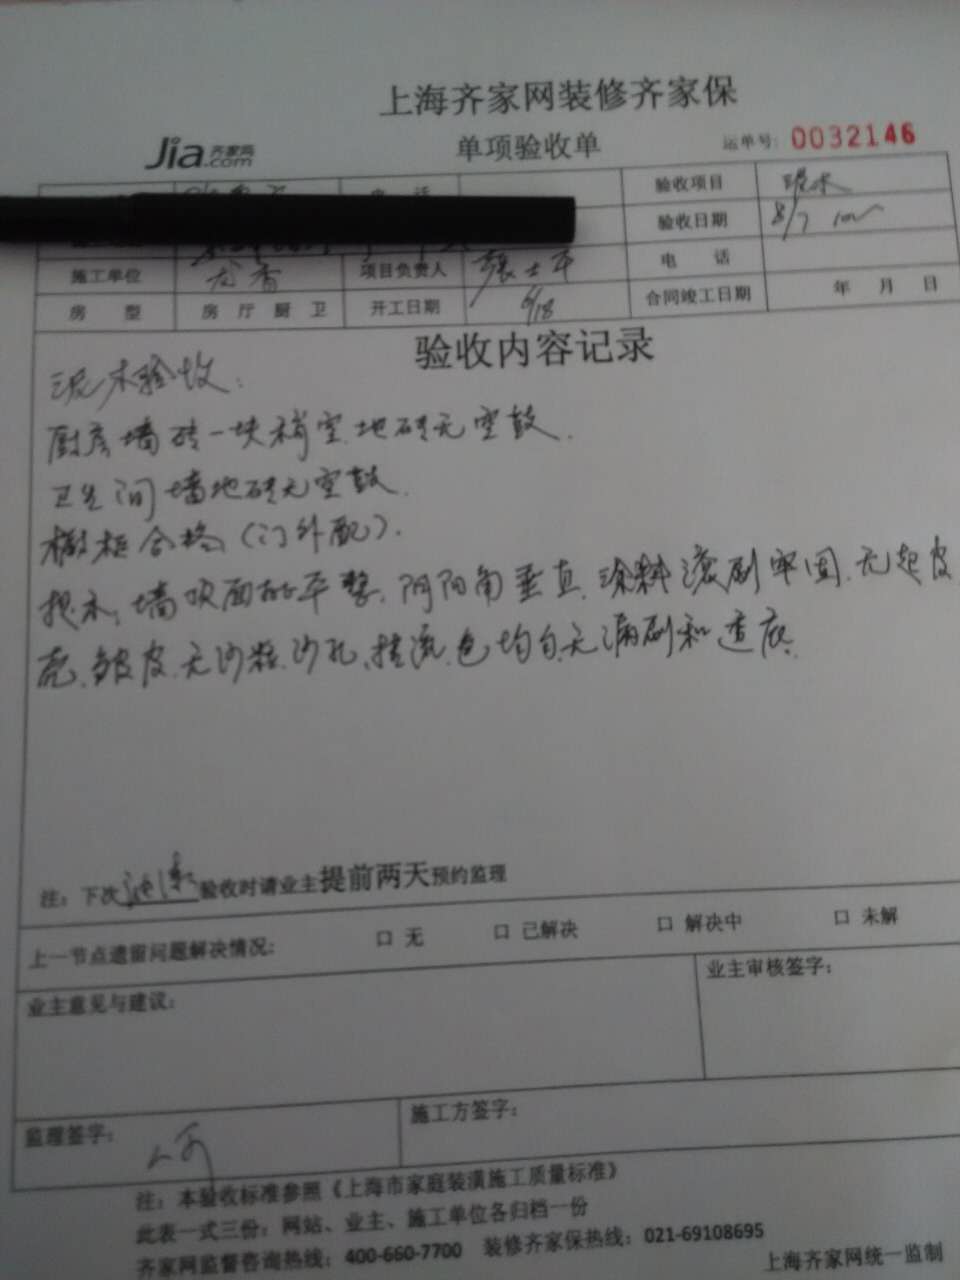 上海齐家网装修齐家保
Jia.com 齐家网
单项验收单
运单号: 0032146
验收项目 泥木
验收日期 8/7
施工单位 项目负责人 电 话
房 型 房 厅 厨 卫 开工日期 6/18 合同竣工日期 年 月 日
验收内容记录
泥木验收:
厨房墙砖一块稍空.地砖无空鼓.
卫生间墙地砖无空鼓.
橱柜合格(门外配).
墙顶面平整.阴阳角垂直.涂料滚刷牢固.无起皮
壳.皱皮.无沙粒.沙孔.挂流.色均匀.无漏刷和透底.
注: 下次油漆验收时请业主提前两天预约监理
上一节点遗留问题解决情况: 口 无 口 已解决 口 解决中 口 未解
业主意见与建议:
业主审核签字:
监理签字:
施工方签字:
注: 本验收标准参照《上海市家庭装潢施工质量标准》
此表一式三份: 网站、业主、施工单位各归档一份
齐家网监督咨询热线: 400-660-7700 装修齐家保热线: 021-69108695
上海齐家网统一监制